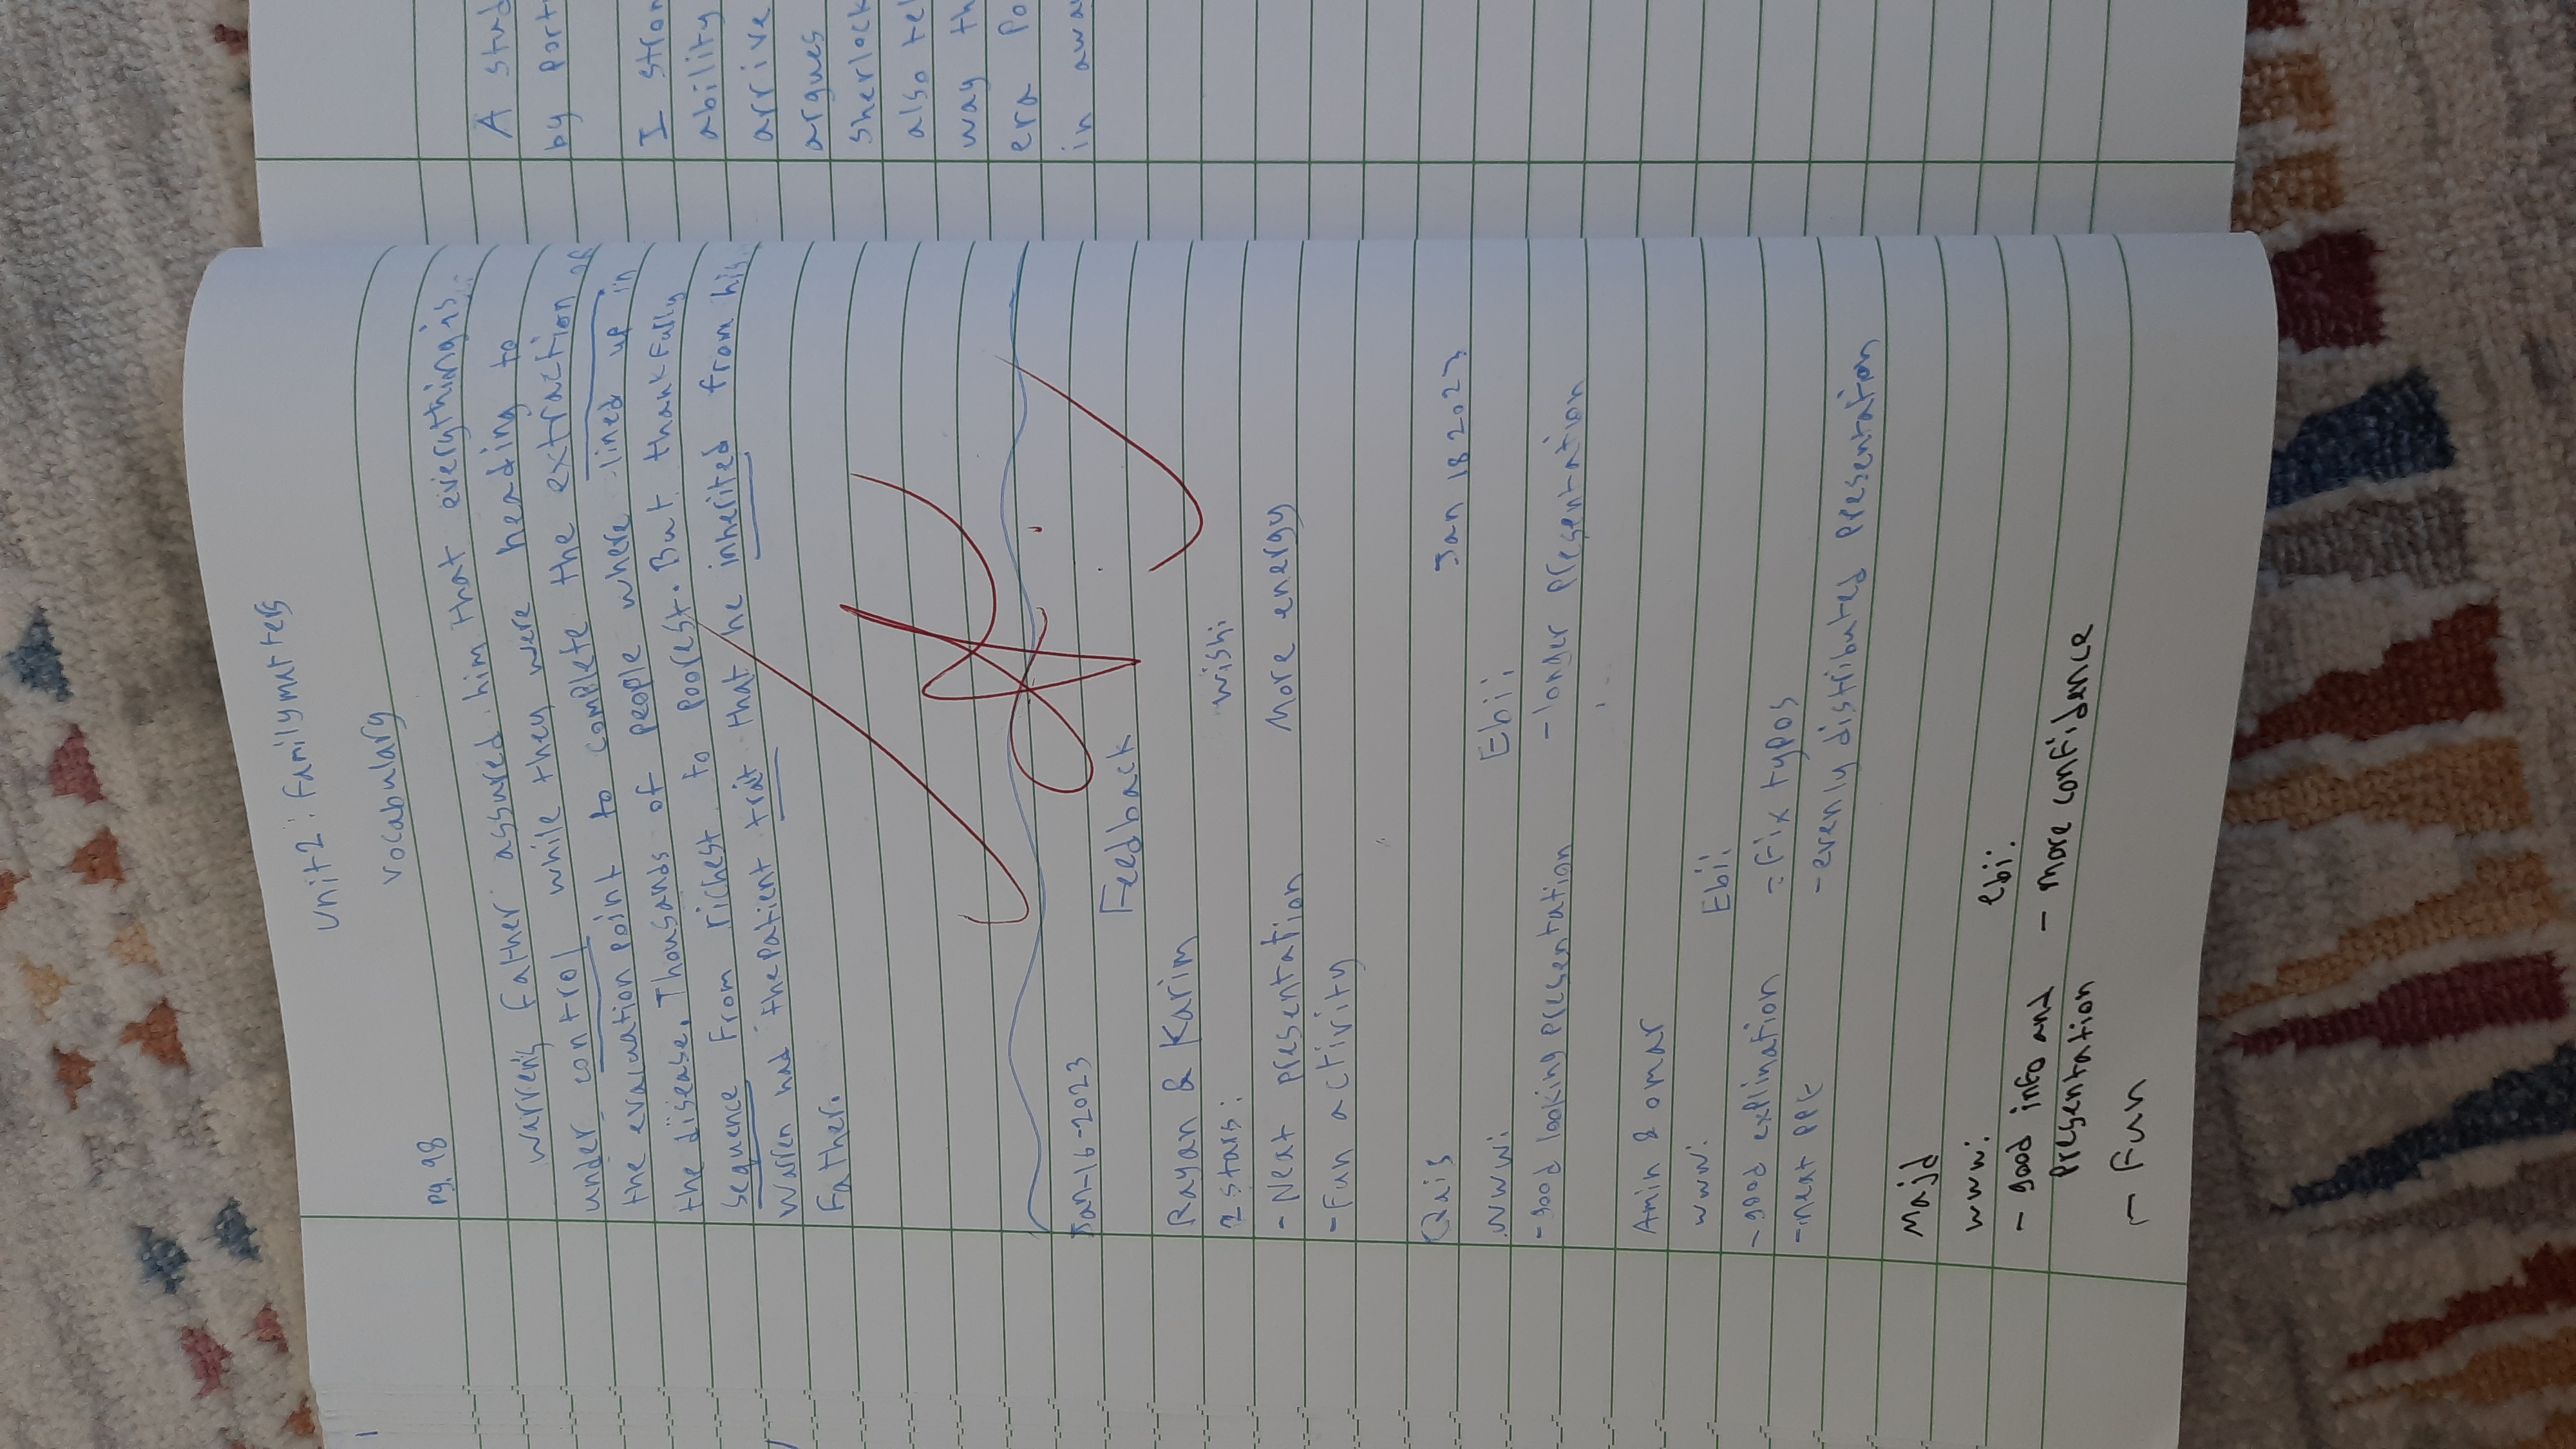 Unit 2: Family matters
Vocabulary
pg. 98
Warren's Father assured him that everything is
under control while they were heading to
the evacuation point to complete the extraction of
the disease. Thousands of people where lined up in
sequence From richest to poorest. But thankfully
Warren had the patient trait that he inherited from his
Father.
Jan-16-2023
Feedback
Rayan & Karim
2 stars:
wish:
- Neat presentation
More energy
- Fun activity
Qais
Jan 18 2023
www:
Ebi:
- good looking presentation
- longer presentation
Amin & omar
www:
Ebi:
- good explination
- Fix typos
- neat PPt
- evenly distributed presentation
Majd
www:
ebi:
- good info and
- more confidence
presentation
- Fun
A stud
by port
I stron
ability
arrive
argues
Sherlock
also rel
way th
era Po
in awa